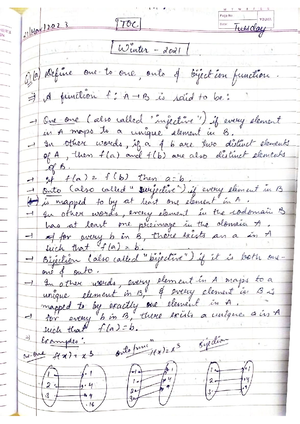 TOC
Tuesday
Winter - 2021
Q.1(a) Define one to one, onto & bijection function.
⇒ A function f: A→B is said to be:
→ One one (also called "injective") if every element
in A maps to a unique element in B.
→ In other words, if a & b are two distinct elements
of A, then f(a) and f(b) are also distinct elements
of B.
→ If f(a) = f(b) then a = b.
→ Onto (also called "surjective") if every element in B
is mapped to by at least one element in A.
→ In other words, every element in the codomain B
has at least one preimage in the domain A.
→ If for every b in B, there exists an a in A
such that f(a) = b.
→ Bijection (also called "bijective") if it is both one-
one & onto.
→ In other words, every element in A maps to a
unique element in B & every element in B is
mapped to by exactly one element in A.
→ for every b in B, there exists a unique a in A
such that f(a) = b.
→ Examples:
f(x) = x³ Onto func f(x) = x³ Bijection